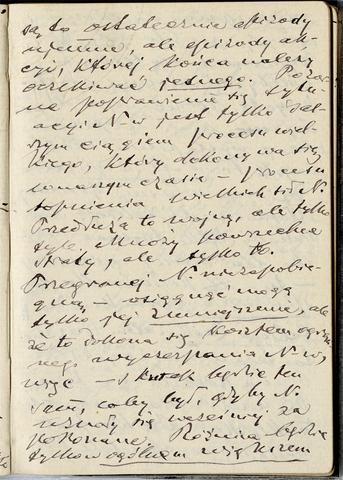 są to ostatecznie epizody
ujemne, ale epizody ak-
cji, której końca należy
oczekiwać jednego. Poza
tym poprawienie się sytu-
acji N-w jest tylko dal-
szym ciągiem procesu wiel-
kiego, który dokonywa się
w naszym czasie – procesu
topnienia wielkich sił N.
Przedłuża to wojnę, ale tylko
tyle. Mnoży powszechne
straty, ale tylko to.
Przegranej N. nie zapobie-
gną – osiągnąć mogą
tylko jej zmniejszenie, ale
że to dokona się kosztem ogrom-
nego wyczerpania N-w,
więc – skutek będzie ten
sam, coby był, gdyby N.
uznały się wcześniej za
pokonane. Różnica będzie
tylko w ogólnem większem